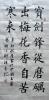 寶劍鋒從磨礪
出梅花香自苦
寒來